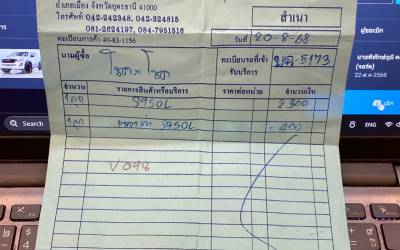 อำเภอเมือง จังหวัดอุดรธานี 41000
โทรศัพท์ 042-242348, 042-324815
081-2624197, 084-7951516
ทะเบียนการค้า 40-83-1156
สำเนา
วันที่ 20-8-68
นามผู้ซื้อ
ทะเบียนรถที่เข้ารับบริการ -5173
จำนวน รายการสินค้าหรือบริการ ราคาต่อหน่วย จำนวนเงิน
1 ลูก S95DL 2300
1 ลูก S95DL -400
V098
ผู้ขอเบิก
22-ต.ค.-2568
เบิก
Search